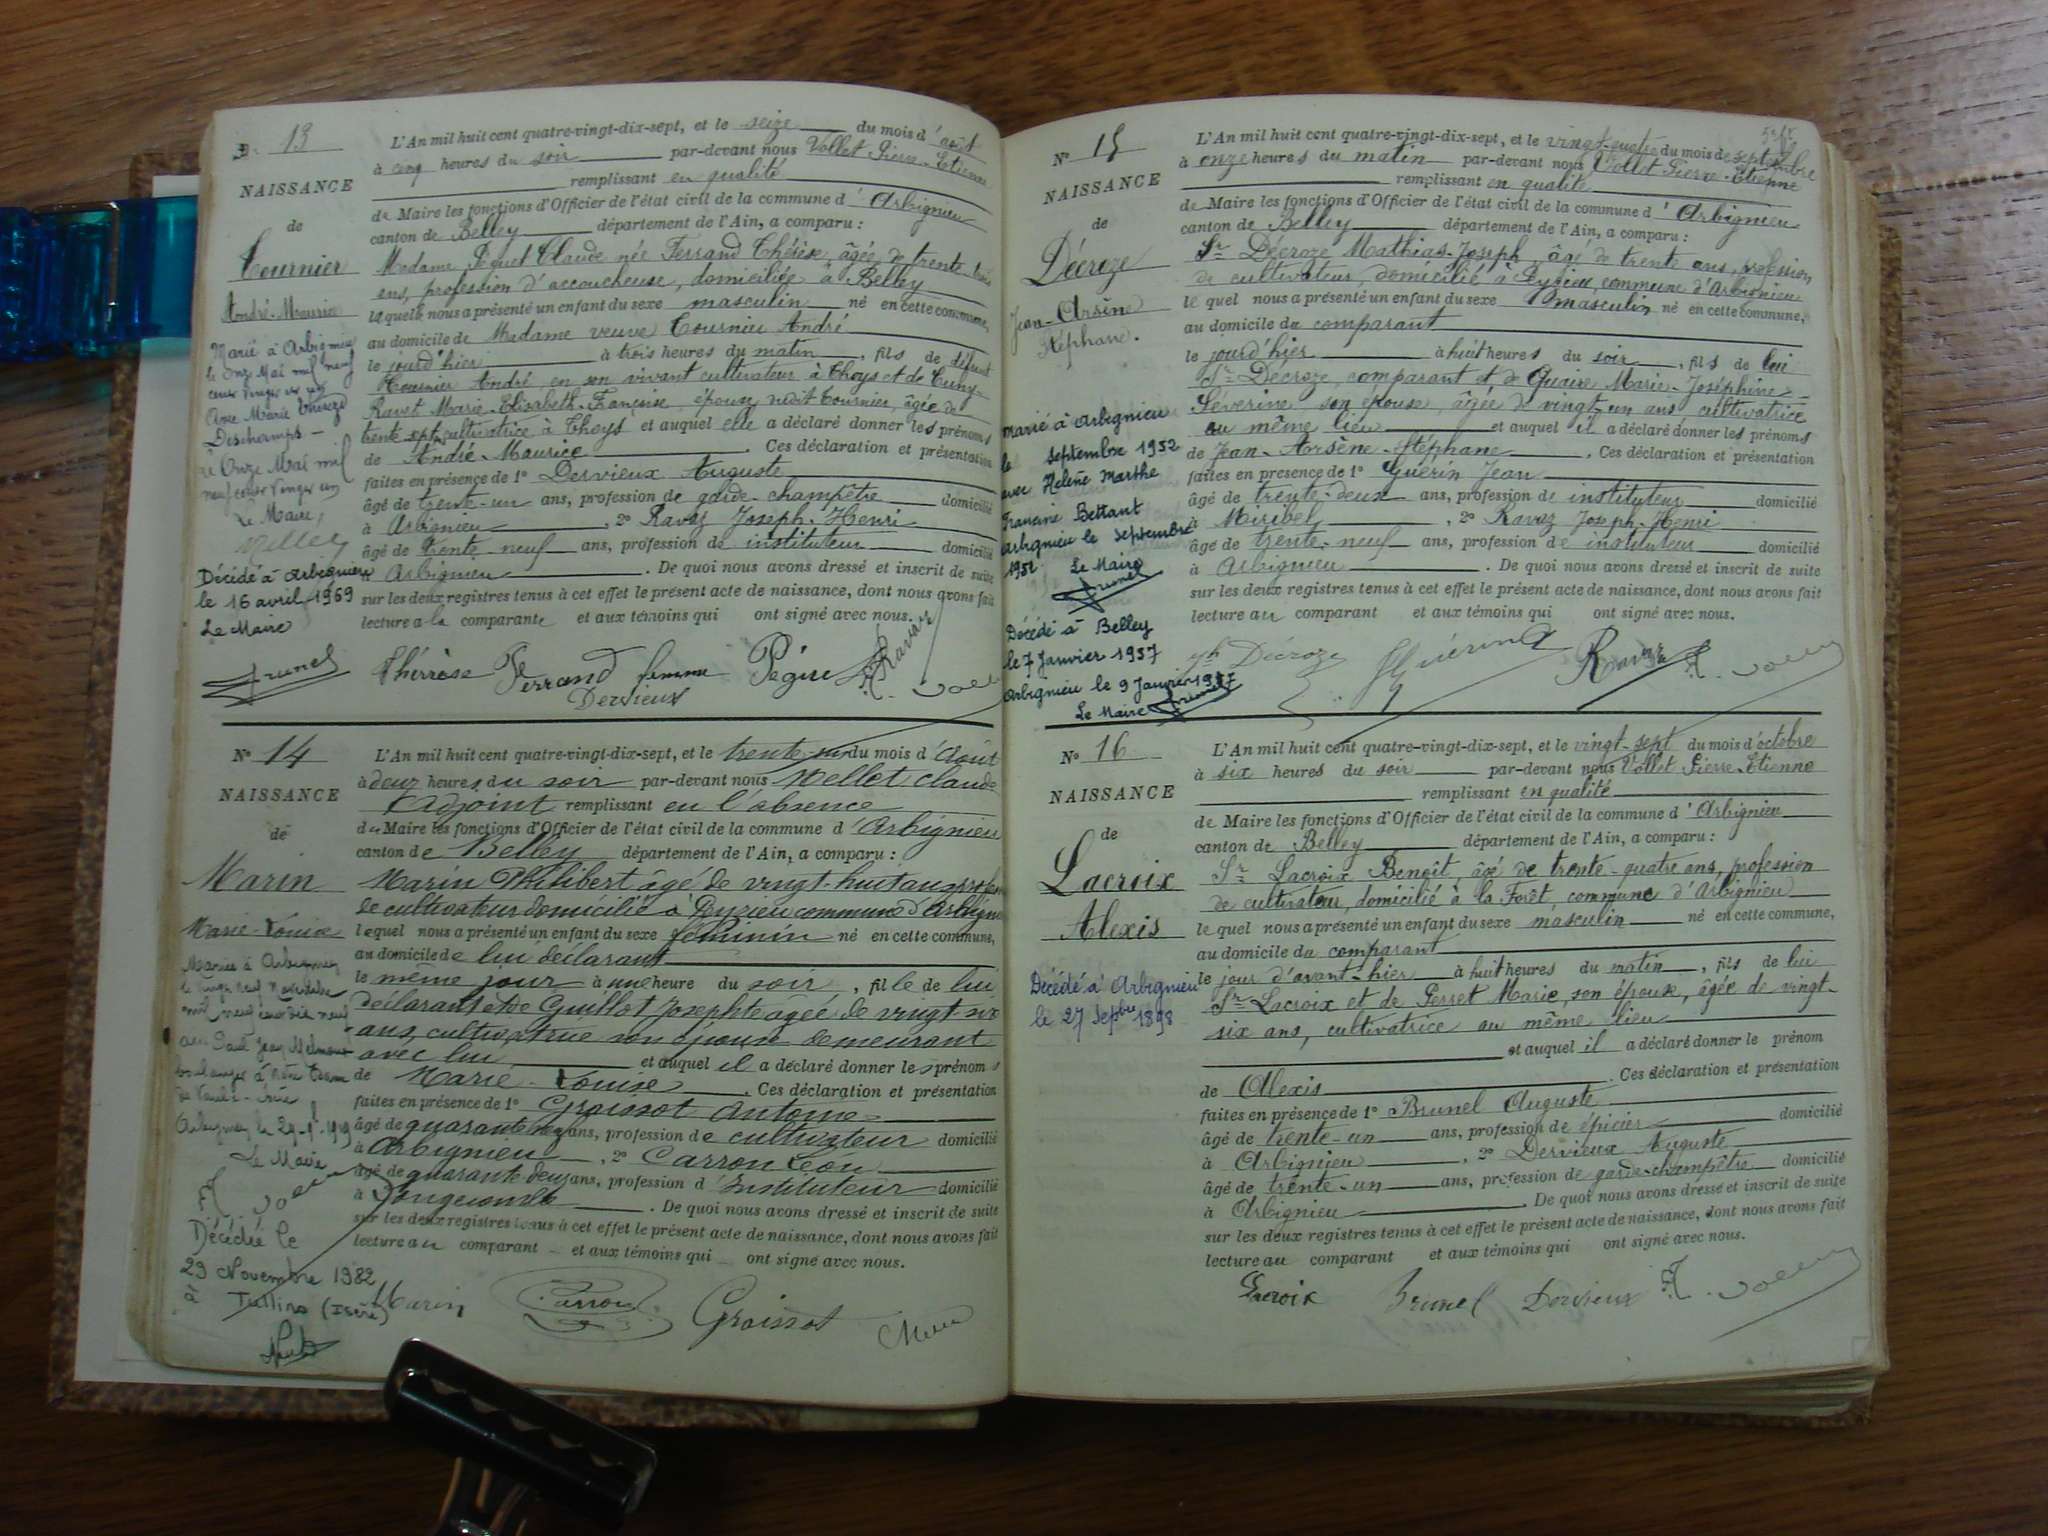 N° 13
NAISSANCE
de
Tournier
André-Maurice
Marié à Arbignieu
le onze Mai mil neuf
cent vingt un
avec Marie Thérèze
Deschamps -
Onze Mai mil
neuf cent vingt un
Le Maire,
Décédé à Arbignieu
le 16 avril 1969
Le Maire
Brunel
L'An mil huit cent quatre-vingt-dix-sept, et le seize du mois d'août
à cinq heures du soir par-devant nous Vollet Pierre-Etienne
remplissant en qualité
de Maire les fonctions d'Officier de l'état civil de la commune d'Arbignieu
canton de Belley département de l'Ain, a comparu :
Madame Péguet Claude née Ferrand Thérèse, âgée de trente trois
ans, profession d'accoucheuse, domiciliée à Belley
laquelle nous a présenté un enfant du sexe masculin né en cette commune,
au domicile de Madame veuve Tournier André
le jourd'hier à trois heures du matin, fils de défunt
Tournier André, en son vivant cultivateur à Thoys et de
Ravet Marie-Elisabeth-Françoise, épouse, âgée de
trente sept, cultivatrice à Thoys et auquel elle a déclaré donner les prénoms
de André-Maurice. Ces déclaration et présentation
faites en présence de 1° Dervieux Auguste
âgé de trente-un ans, profession de garde-champêtre domicilié
à Arbignieu, 2° Ravaz Joseph-Henri
âgé de trente-neuf ans, profession de instituteur domicilié
à Arbignieu. De quoi nous avons dressé et inscrit de suite
sur les deux registres tenus à cet effet le présent acte de naissance, dont nous avons fait
lecture à la comparante et aux témoins qui ont signé avec nous.
Thérèse Ferrand femme Ravaz
Dervieux
N° 14
NAISSANCE
de
Marin
Marie-Louise
Mariée à
Le Maire
Décédée le
29 Novembre 1982
à Tullins (Isère)
L'An mil huit cent quatre-vingt-dix-sept, et le trente-un du mois d'Août
à deux heures du soir par-devant nous Mellet Claude
adjoint remplissant en l'absence
du Maire les fonctions d'Officier de l'état civil de la commune d'Arbignieu
canton de Belley département de l'Ain, a comparu :
Marin Philibert âgé de vingt-huit ans profession
de cultivateur domicilié à Peyzieu commune d'Arbignieu
lequel nous a présenté un enfant du sexe féminin né en cette commune,
au domicile de lui déclarant
le même jour à une heure du soir, fille de lui
déclarant et de Guillot Josephte âgée de vingt-six
ans, cultivatrice son épouse demeurant
avec lui et auquel il a déclaré donner les prénoms
de Marie-Louise. Ces déclaration et présentation
faites en présence de 1° Groissot Antoine
âgé de quarante ans, profession de cultivateur domicilié
à Arbignieu, 2° Carron Léon
âgé de quarante deux ans, profession d'Instituteur domicilié
à Songieu. De quoi nous avons dressé et inscrit de suite
sur les deux registres tenus à cet effet le présent acte de naissance, dont nous avons fait
lecture au comparant et aux témoins qui ont signé avec nous.
Marin Carron Groissot
N° 15
NAISSANCE
de
Décroze
Jean-Arsène
Stéphane.
Marié à Arbignieu
le septembre 1952
avec Helène Marthe
Francine Bettant
Arbignieu le septembre
1952 Le Maire
Brunel
Décédé à Belley
le 7 Janvier 1957
Arbignieu le 9 Janvier 1957
Le Maire Brunel
L'An mil huit cent quatre-vingt-dix-sept, et le vingt-quatre du mois de septembre
à onze heures du matin par-devant nous Vollet Pierre-Etienne
remplissant en qualité
de Maire les fonctions d'Officier de l'état civil de la commune d'Arbignieu
canton de Belley département de l'Ain, a comparu :
Sr Décroze Mathias-Joseph, âgé de trente ans, profession
de cultivateur, domicilié à Peyzieu, commune d'Arbignieu
lequel nous a présenté un enfant du sexe masculin né en cette commune,
au domicile du comparant
le jourd'hier à huit heures du soir, fils de lui
Sr Décroze, comparant et de Quaire Marie-Joséphine-
Séverine, son épouse, âgée de vingt-un ans, cultivatrice
au même lieu et auquel il a déclaré donner les prénoms
de Jean-Arsène-Stéphane. Ces déclaration et présentation
faites en presence de 1° Guérin Jean
âgé de trente-deux ans, profession de instituteur domicilié
à Miribel, 2° Ravaz Joseph-Henri
âgé de trente-neuf ans, profession de instituteur domicilié
à Arbignieu. De quoi nous avons dressé et inscrit de suite
sur les deux registres tenus à cet effet le présent acte de naissance, dont nous avons fait
lecture au comparant et aux témoins qui ont signé avec nous.
Décroze Guérin Ravaz
N° 16
NAISSANCE
de
Lacroix
Alexis
Décédé à Arbignieu
le 27 Septbre 1898
L'An mil huit cent quatre-vingt-dix-sept, et le vingt-sept du mois d'octobre
à six heures du soir par-devant nous Vollet Pierre-Etienne
remplissant en qualité
de Maire les fonctions d'Officier de l'état civil de la commune d'Arbignieu
canton de Belley département de l'Ain, a comparu :
Sr Lacroix Benoît, âgé de trente-quatre ans, profession
de cultivateur, domicilié à la Forêt, commune d'Arbignieu
lequel nous a présenté un enfant du sexe masculin né en cette commune,
au domicile du comparant
le jour d'avant-hier à huit heures du matin, fils de lui
Sr Lacroix et de Perret Marie, son épouse, âgée de vingt-
six ans, cultivatrice au même lieu
et auquel il a déclaré donner le prénom
de Alexis. Ces déclaration et présentation
faites en présence de 1° Brunel Auguste
âgé de trente-un ans, profession de épicier domicilié
à Arbignieu, 2° Dervieux Auguste
âgé de trente-un ans, profession de garde-champêtre domicilié
à Arbignieu. De quoi nous avons dressé et inscrit de suite
sur les deux registres tenus à cet effet le présent acte de naissance, dont nous avons fait
lecture au comparant et aux témoins qui ont signé avec nous.
Lacroix Brunel Dervieux